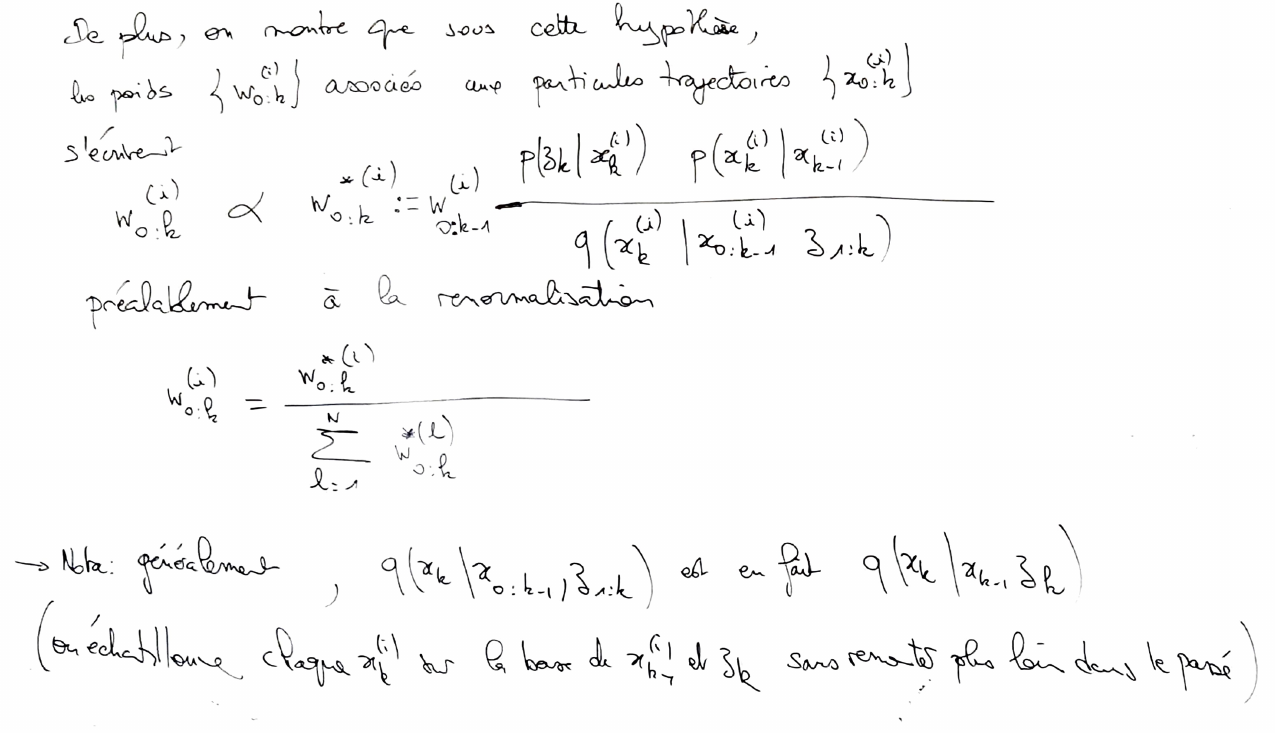 De plus, on montre que sous cette hypothèse,
les poids {w_{0:k}^{(i)}} associés aux particules trajectoires {x_{0:k}^{(i)}}
s'écrivent
w_{0:k}^{(i)} ∝ w_{0:k}^{*(i)} := w_{0:k-1}^{(i)} \frac{p(z_k | x_k^{(i)}) p(x_k^{(i)} | x_{k-1}^{(i)})}{q(x_k^{(i)} | x_{0:k-1}^{(i)} z_{1:k})}
préalablement à la renormalisation
w_{0:k}^{(i)} = \frac{w_{0:k}^{*(i)}}{\sum_{l=1}^{N} w_{0:k}^{*(l)}}
→ Nota: généralement, q(x_k | x_{0:k-1}, z_{1:k}) est en fait q(x_k | x_{k-1} z_k)
(on échantillonne chaque x_k^{(i)} sur la base de x_{k-1}^{(i)} et z_k sans remonter plus loin dans le passé)